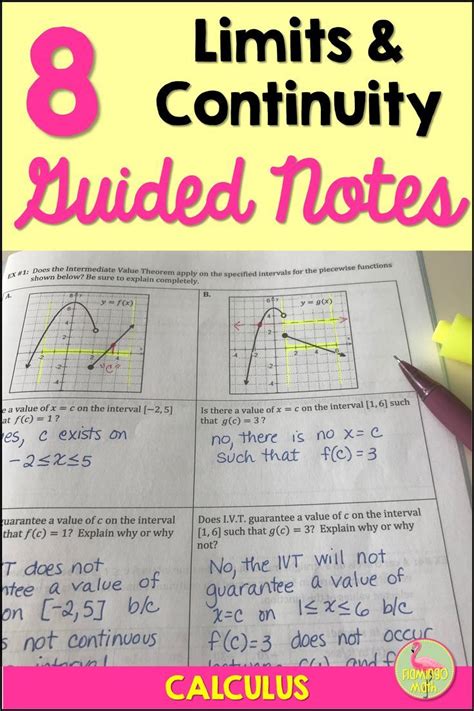 8
Limits &
Continuity
Guided Notes
EX #1: Does the Intermediate Value Theorem apply on the specified intervals for the piecewise functions
shown below? Be sure to explain completely.
A.
y = f(x)
B.
y = g(x)
e a value of x = c on the interval [−2, 5]
at f(c) = 1?
es, c exists on
-2≤x≤5
Is there a value of x = c on the interval [1, 6] such
that g(c) = 3?
no, there is no x = c
such that f(c) = 3
guarantee a value of c on the interval
that f(c) = 1? Explain why or why
T does not
ntee a value of
on [-2,5] b/c
s not continuous
interval
Does I.V.T. guarantee a value of c on the interval
[1, 6] such that g(c) = 3? Explain why or why
not?
No, the IVT will not
guarantee a value of
x=c on 1≤x≤6 b/c
f(c)=3 does not occur
between f(1) and f
CALCULUS
Flamingo
Math